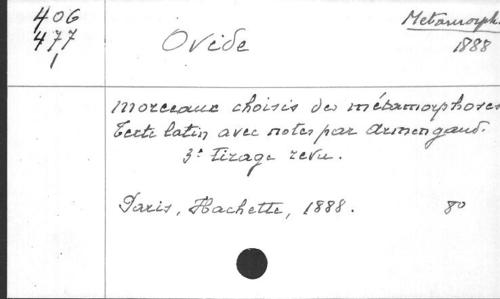 406
477
1
Ovide
Métamorph.
1888
Morceaux choisis des métamorphoses
Texte latin avec notes par Armengaud.
3e tirage revu.
Paris, Hachette, 1888. 8o